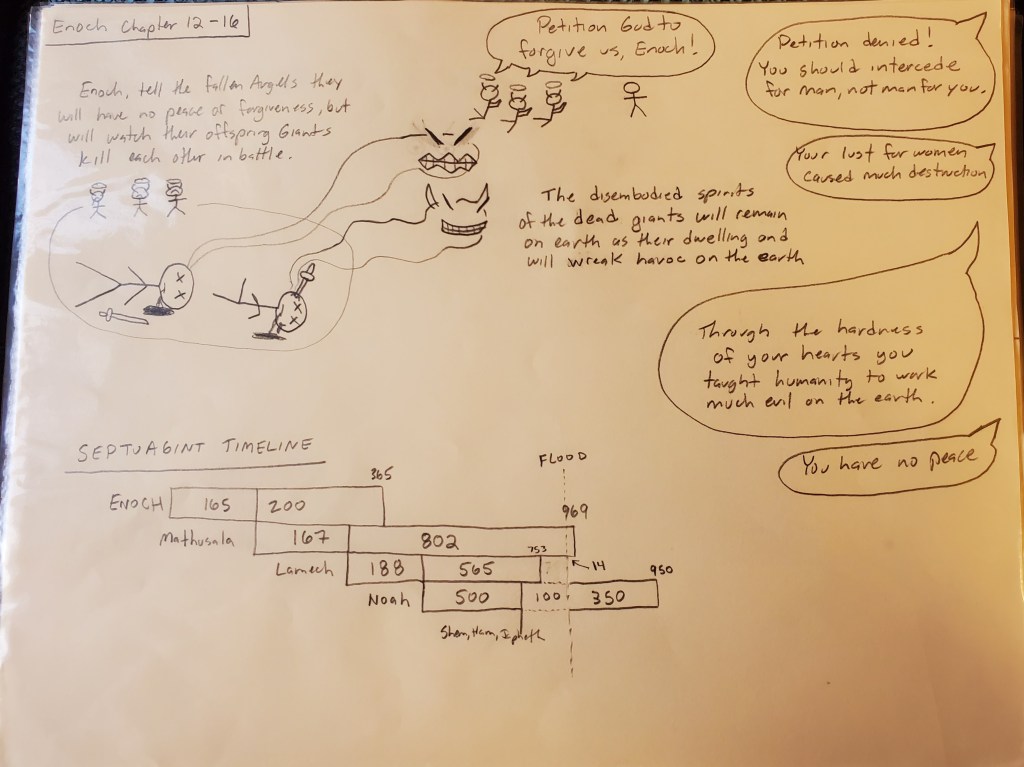 Enoch Chapter 12-16
Enoch, tell the fallen Angels they
will have no peace or forgiveness, but
will watch their offspring Giants
kill each other in battle.
Petition God to
forgive us, Enoch!
Petition denied!
You should intercede
for man, not man for you.
Your lust for women
caused much destruction
The disembodied spirits
of the dead giants will remain
on earth as their dwelling and
will wreak havoc on the earth
Through the hardness
of your hearts you
taught humanity to work
much evil on the earth.
You have no peace
SEPTUAGINT TIMELINE
FLOOD
365
ENOCH 165 200
969
Mathusala 167 802
753
14
Lamech 188 565
950
Noah 500 100 350
Shem, Ham, Japheth